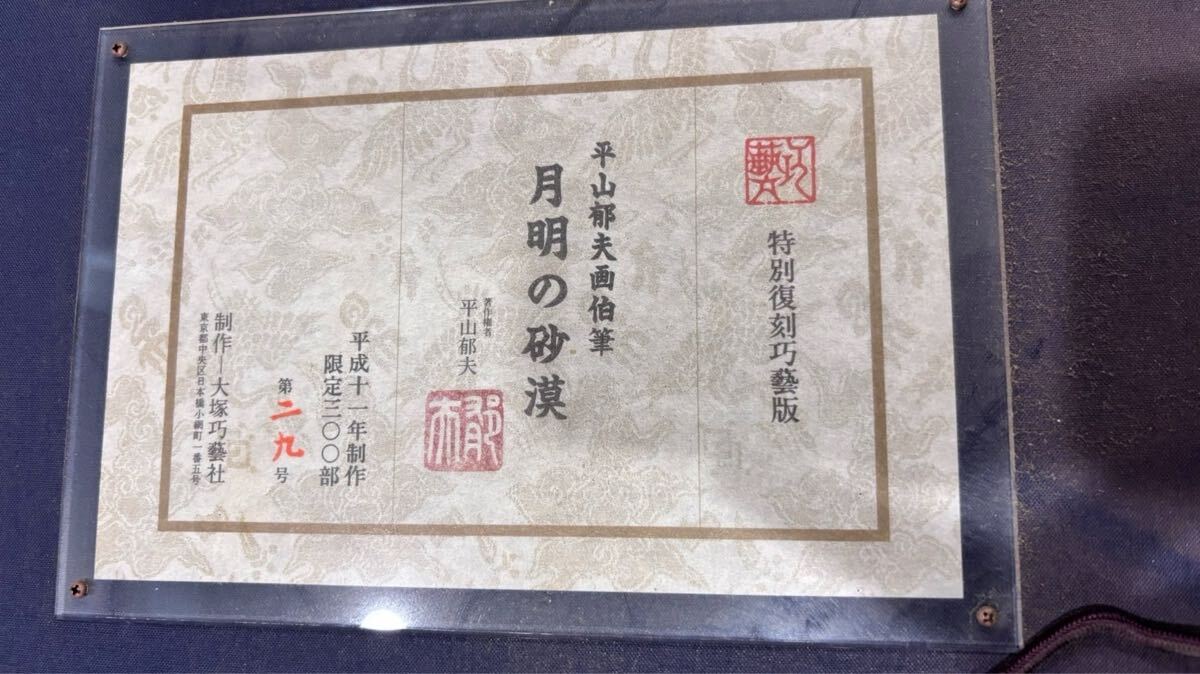 巧藝
特別復刻巧藝版
平山郁夫画伯筆
月明の砂漠
著作権者
平山郁夫
郁夫
平成十一年制作
限定三〇〇部
第二九号
制作―大塚巧藝社
東京都中央区日本橋小網町一番五号